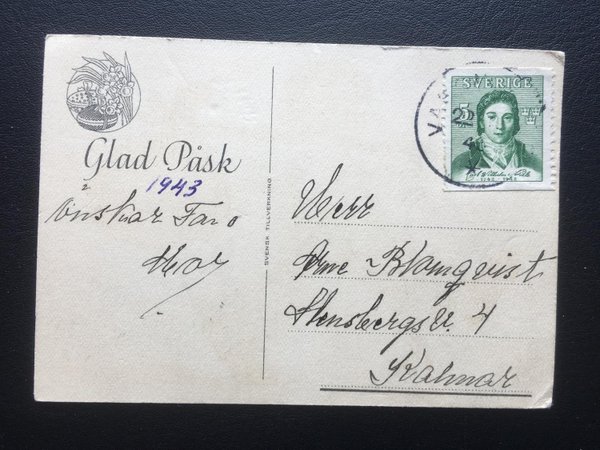 Glad Påsk
1943
önskar Far o
Mor
SVENSK TILLVERKNING
SVERIGE
5
1742-1942
Herr
Arne Blomqvist
4
Kalmar